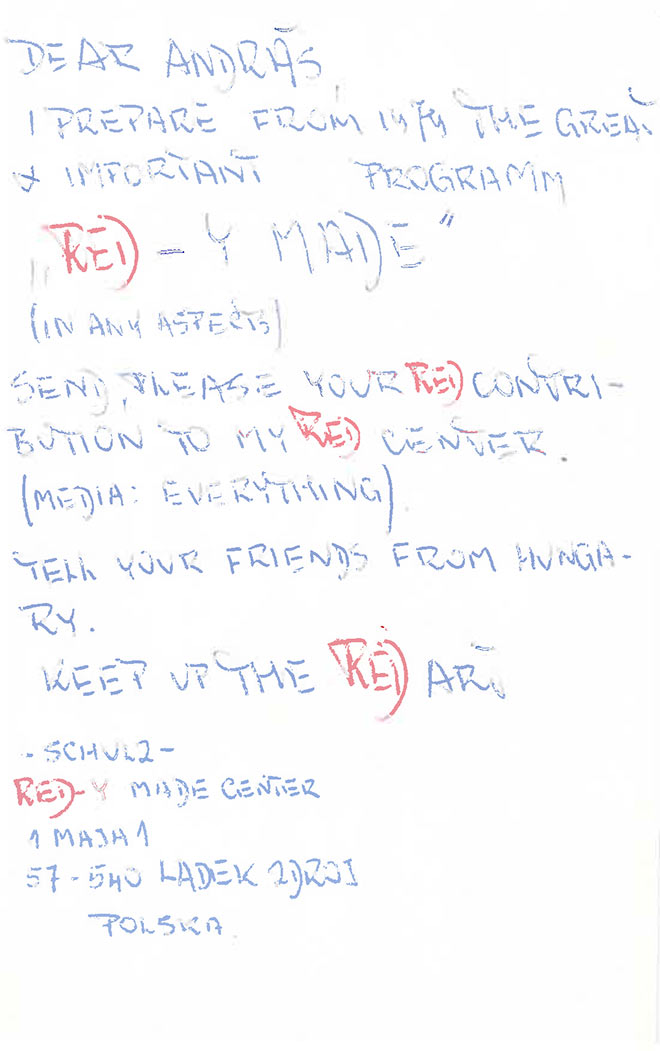 DEAR ANDRÁS
I PREPARE FROM 1979 THE GREAT
& IMPORTANT PROGRAMM
"RED - Y MADE"
(IN ANY ASPECTS)
SEND, PLEASE YOUR RED CONTRI-
BUTION TO MY RED CENTER.
(MEDIA: EVERYTHING)
TELL YOUR FRIENDS FROM HUNGA-
RY.
KEEP UP THE RED ART
- SCHULZ -
RED-Y MADE CENTER
1 MAJA 1
57-540 LADEK ZDROJ
POLSKA